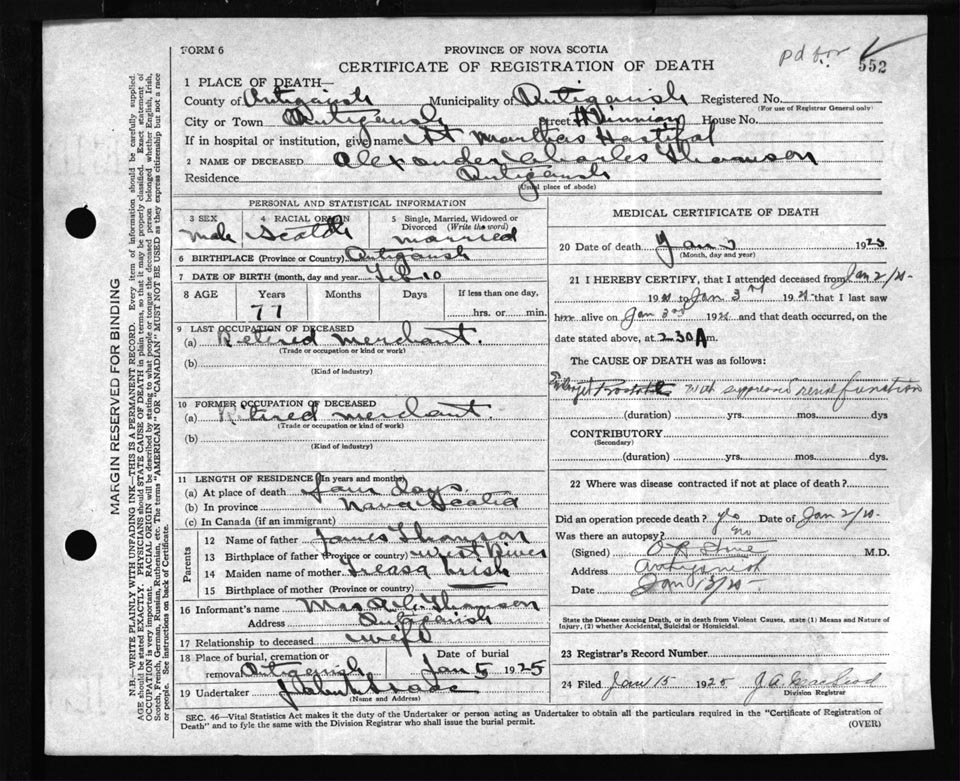 FORM 6
PROVINCE OF NOVA SCOTIA
pd for
CERTIFICATE OF REGISTRATION OF DEATH
552
1 PLACE OF DEATH—
County of Antigonish Municipality of Antigonish Registered No.
(For use of Registrar General only)
City or Town Antigonish Street House No.
If in hospital or institution, give name St Marthas Hospital
2 NAME OF DECEASED Alexander Charles Thomson
Residence Antigonish
(Usual place of abode)
PERSONAL AND STATISTICAL INFORMATION
3 SEX 4 RACIAL ORIGIN 5 Single, Married, Widowed or Divorced (Write the word)
male Scotch married
6 BIRTHPLACE (Province or Country) Antigonish
7 DATE OF BIRTH (month, day and year) Feb 10
8 AGE Years Months Days If less than one day,
77 hrs. or min.
9 LAST OCCUPATION OF DECEASED
(a) Retired merchant.
(Trade or occupation or kind of work)
(b)
(Kind of industry)
10 FORMER OCCUPATION OF DECEASED
(a) Retired merchant
(Trade or occupation or kind of work)
(b)
(Kind of industry)
11 LENGTH OF RESIDENCE (In years and months)
(a) At place of death days
(b) In province Nova Scotia
(c) In Canada (if an immigrant)
Parents
12 Name of father James Thomson
13 Birthplace of father (Province or country) West River
14 Maiden name of mother
15 Birthplace of mother (Province or country)
16 Informant's name Mrs A. C. Thomson
Address Antigonish
17 Relationship to deceased wife
18 Place of burial, cremation or removal Antigonish Date of burial Jan 5 1925
19 Undertaker
(Name and Address)
MEDICAL CERTIFICATE OF DEATH
20 Date of death Jan 3 1925
(Month, day and year)
21 I HEREBY CERTIFY, that I attended deceased from Jan 2/25
19 to Jan 3rd 19 that I last saw
him alive on Jan 3rd 19 and that death occurred, on
date stated above, at 2.30 A m.
The CAUSE OF DEATH was as follows:
with suppressed renal function
(duration) yrs. mos. dys
CONTRIBUTORY
(Secondary)
(duration) yrs. mos. dys.
22 Where was disease contracted if not at place of death?
Did an operation precede death? yes Date of Jan 2/25
Was there an autopsy? no
(Signed) M.D.
Address Antigonish
Date Jan 13/25
State the Disease causing Death, or in death from Violent Causes, state (1) Means and Nature of Injury, (2) whether Accidental, Suicidal or Homicidal.
23 Registrar's Record Number
24 Filed Jan 15 1925 J. A. MacLeod
Division Registrar
SEC. 46—Vital Statistics Act makes it the duty of the Undertaker or person acting as Undertaker to obtain all the particulars required in the "Certificate of Registration of
Death" and to fyle the same with the Division Registrar who shall issue the burial permit.
(OVER)
MARGIN RESERVED FOR BINDING
N.B.—WRITE PLAINLY WITH UNFADING INK—THIS IS A PERMANENT RECORD. Every item of information should be carefully supplied.
AGE should be stated EXACTLY. PHYSICIANS should STATE CAUSE OF DEATH in plain terms, so that it may be properly classified. Exact statement of
OCCUPATION is very important. RACIAL ORIGIN will be described by stating to what people or tongue the deceased person belonged whether English, Irish,
Scotch, French, German, Russian, Ruthenian, etc. The terms "AMERICAN" OR "CANADIAN" MUST NOT BE USED as they express citizenship but not a race
or people. See instructions on back of Certificate.